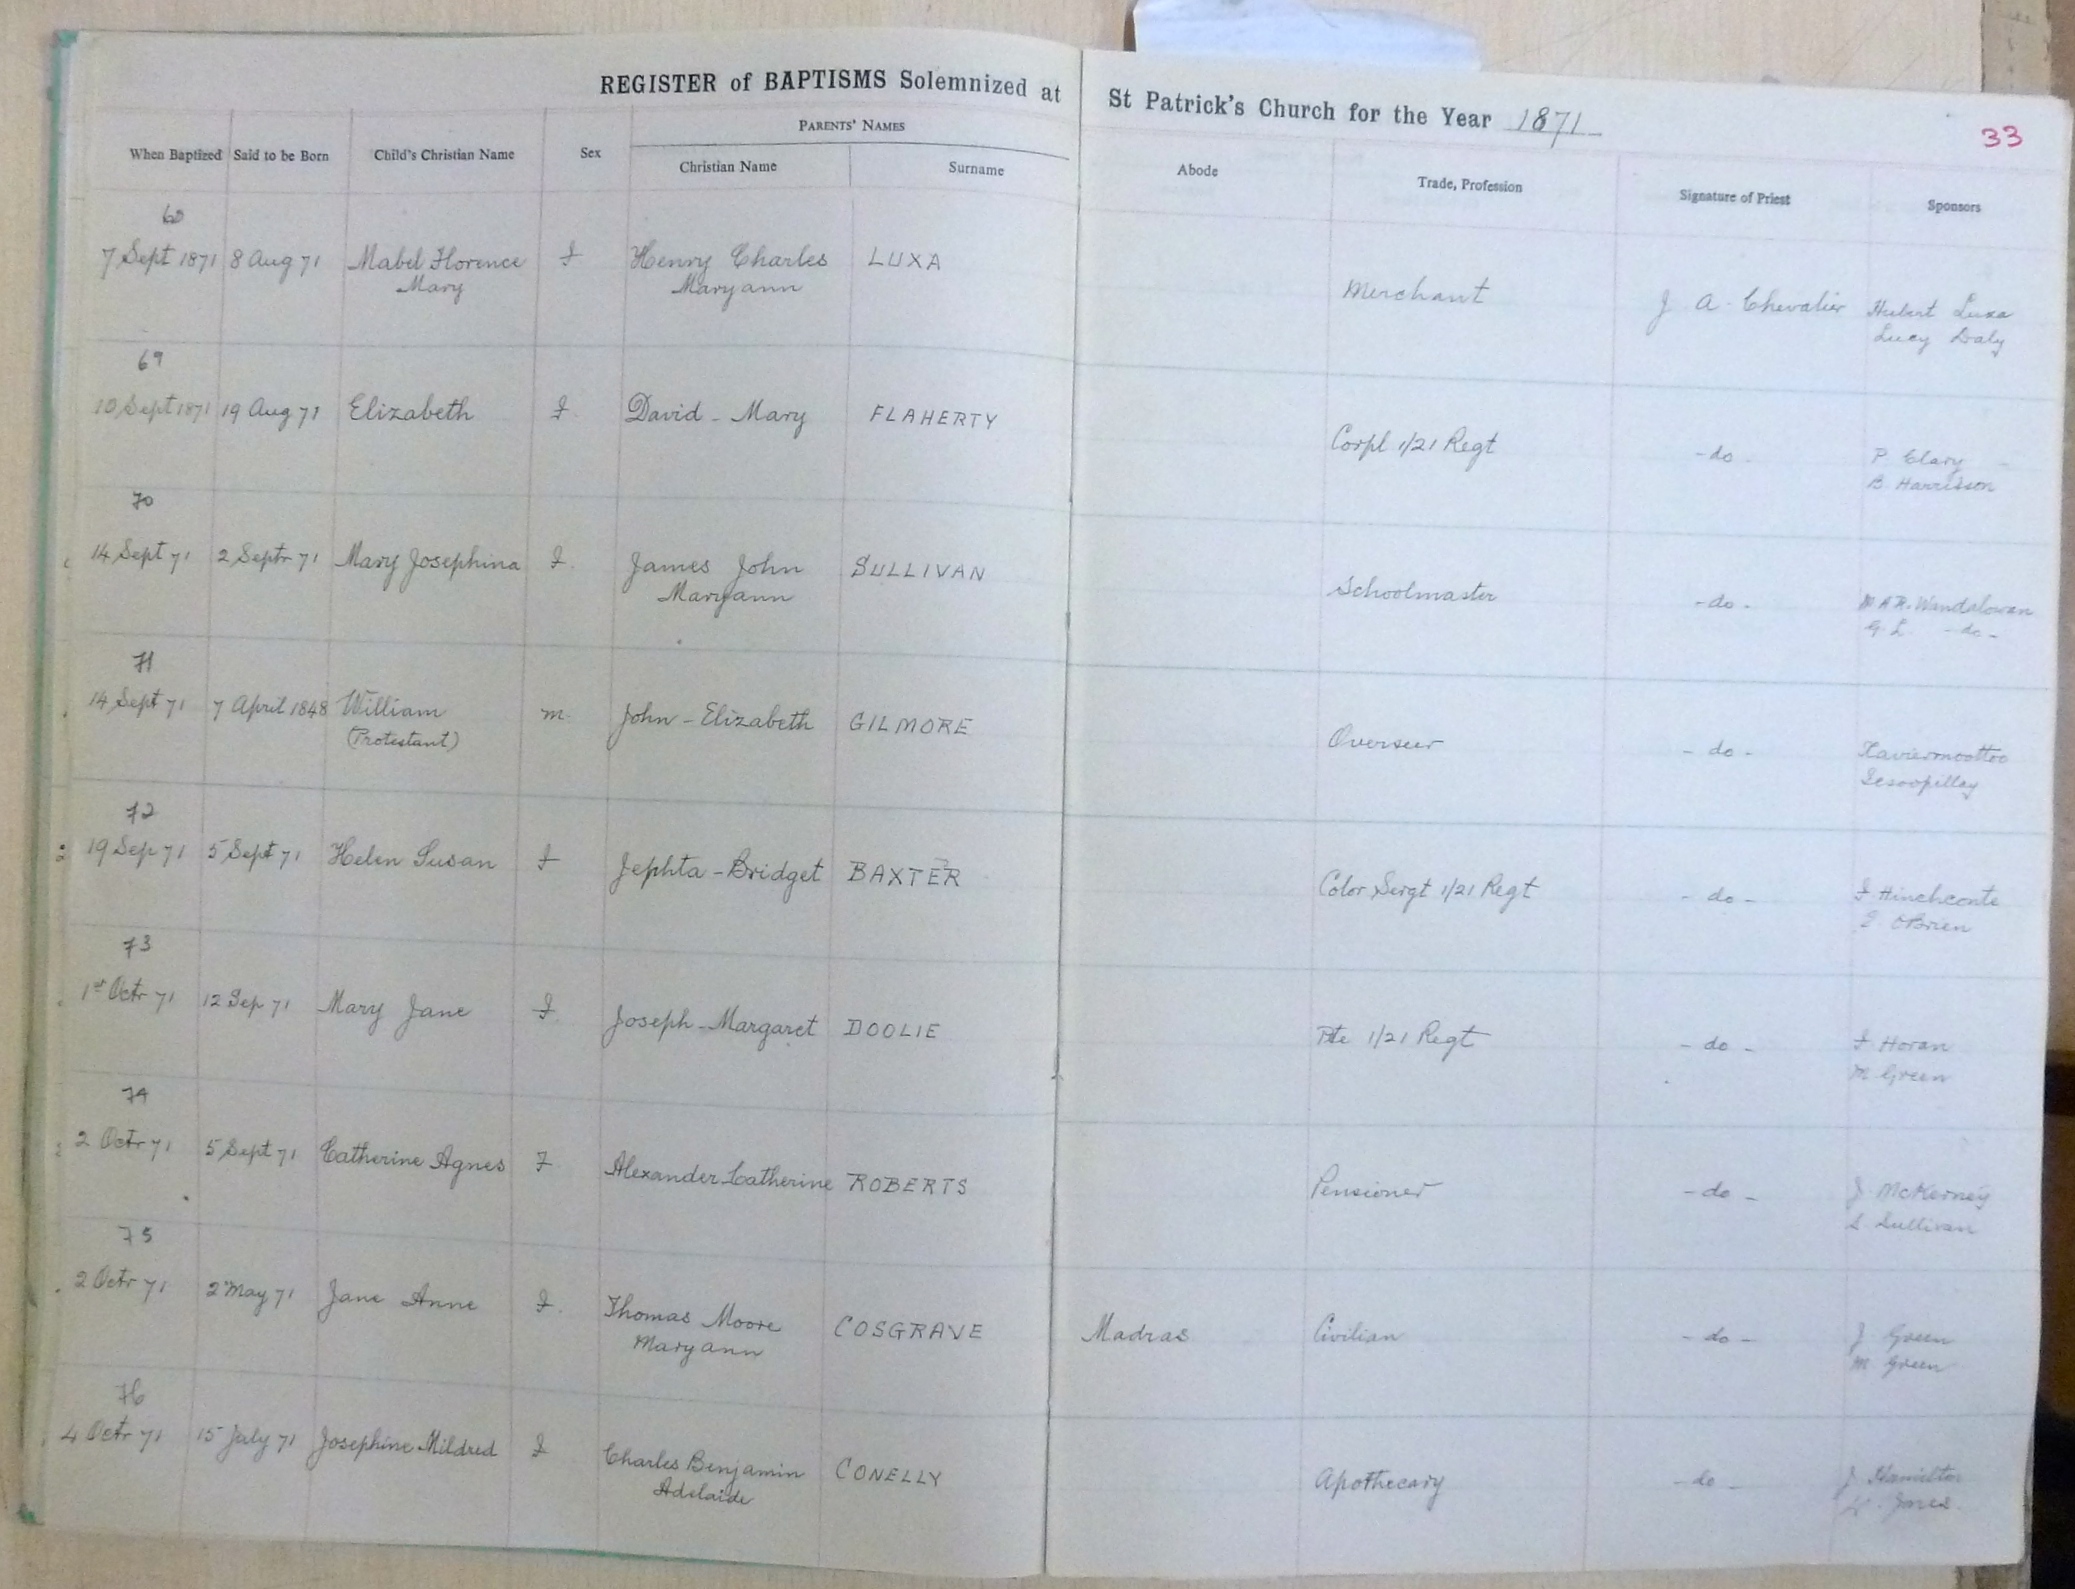 REGISTER of BAPTISMS Solemnized at St Patrick's Church for the Year 1871
33
PARENTS' NAMES
When Baptized Said to be Born Child's Christian Name Sex Christian Name Surname Abode Trade, Profession Signature of Priest Sponsors
68
7 Sept 1871 8 Aug 71 Mabel Florence F Henry Charles LUXA Merchant J A. Chevalier Hubert Luxa
Mary Maryann Lucy Daly
69
10 Sept 1871 19 Aug 71 Elizabeth F. David - Mary FLAHERTY Corpl 1/21 Regt - do - P Clary
B. Harrisson
70
14 Sept 71 2 Septr 71 Mary Josephina F. James John SULLIVAN Schoolmaster - do -
Maryann G. L. - do -
71
14 Sept 71 7 April 1848 William m. John - Elizabeth GILMORE Overseer - do - Xaviermoottoo
(Protestant) Sesoopillay
72
19 Sep 71 5 Sept 71 Helen Susan F Jephta - Bridget BAXTER Color Sergt 1/21 Regt - do - F Hinchconte
E O'Brien
73
1st Octr 71 12 Sep 71 Mary Jane F. Joseph - Margaret DOOLIE Pte 1/21 Regt - do - F Horan
M Green
74
2 Octr 71 5 Sept 71 Catherine Agnes F. Alexander Catherine ROBERTS Pensioner - do - J McKerney
S. Sullivan
75
2 Octr 71 2 May 71 Jane Anne F. Thomas Moore COSGRAVE Madras Civilian - do - J Green
Maryann M Green
76
4 Octr 71 15 July 71 Josephine Mildred F Charles Benjamin CONELLY Apothecary - do - J Hamilton
Adelaide Jones.